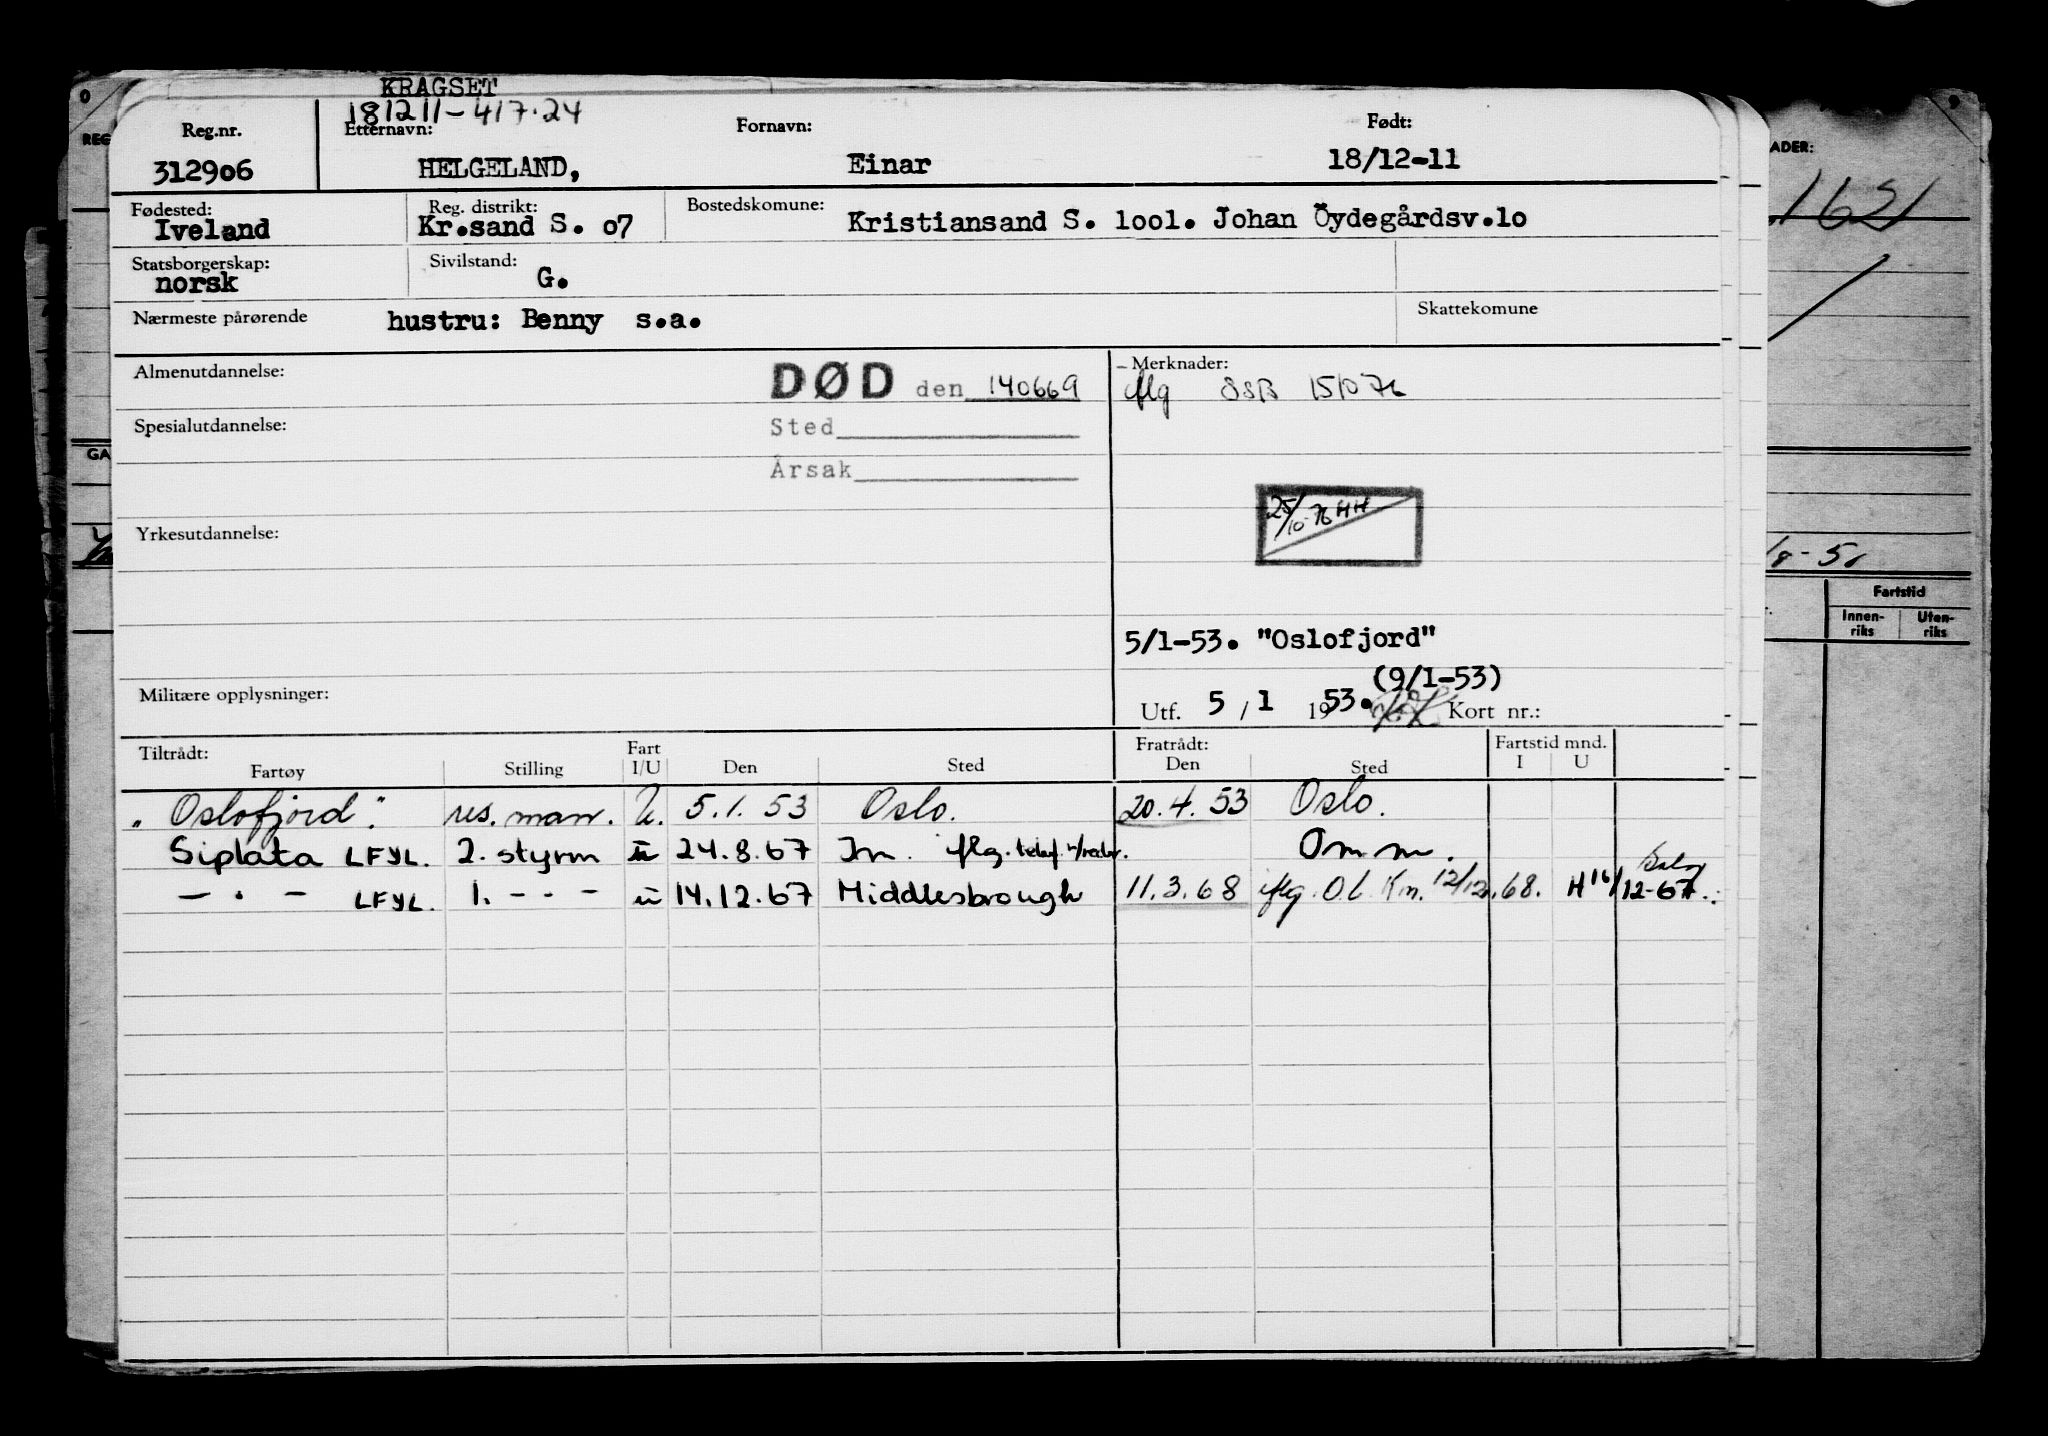 KRAGSET
181211-417.24
Reg.nr. Etternavn: Fornavn: Født:
312906 HELGELAND, Einar 18/12-11
Fødested: Reg. distrikt: Bostedskomune:
Iveland Kr.sand S. o7 Kristiansand S. 1ool. Johan Öydegårdsv.lo
Statsborgerskap: Sivilstand:
norsk G.
Nærmeste pårørende hustru: Benny s.a. Skattekomune
Almenutdannelse: DØD den 140669 Merknader:
iflg SSB 151076
Spesialutdannelse: Sted
Årsak
25/10-76 HH
Yrkesutdannelse:
5/1-53. "Oslofjord"
(9/1-53)
Militære opplysninger: Utf. 5 / 1 1953. Kort nr.:
Tiltrådt: Fart Fratrådt: Fartstid mnd.
Fartøy Stilling I/U Den Sted Den Sted I U
"Oslofjord". res. mann. U. 5.1.53 Oslo. 20.4.53 Oslo.
Siplata LFYL. 2. styrm u 24.8.67 Im. iflg. telef. Omm.
— " — LFYL. 1. - " - u 14.12.67 Middlesbrough 11.3.68 iflg. O.L. Km. 12/12.68. H 16/12-67
REG
GA
ADER:
1621
/8-51
Fartstid
Innen-riks Uten-riks